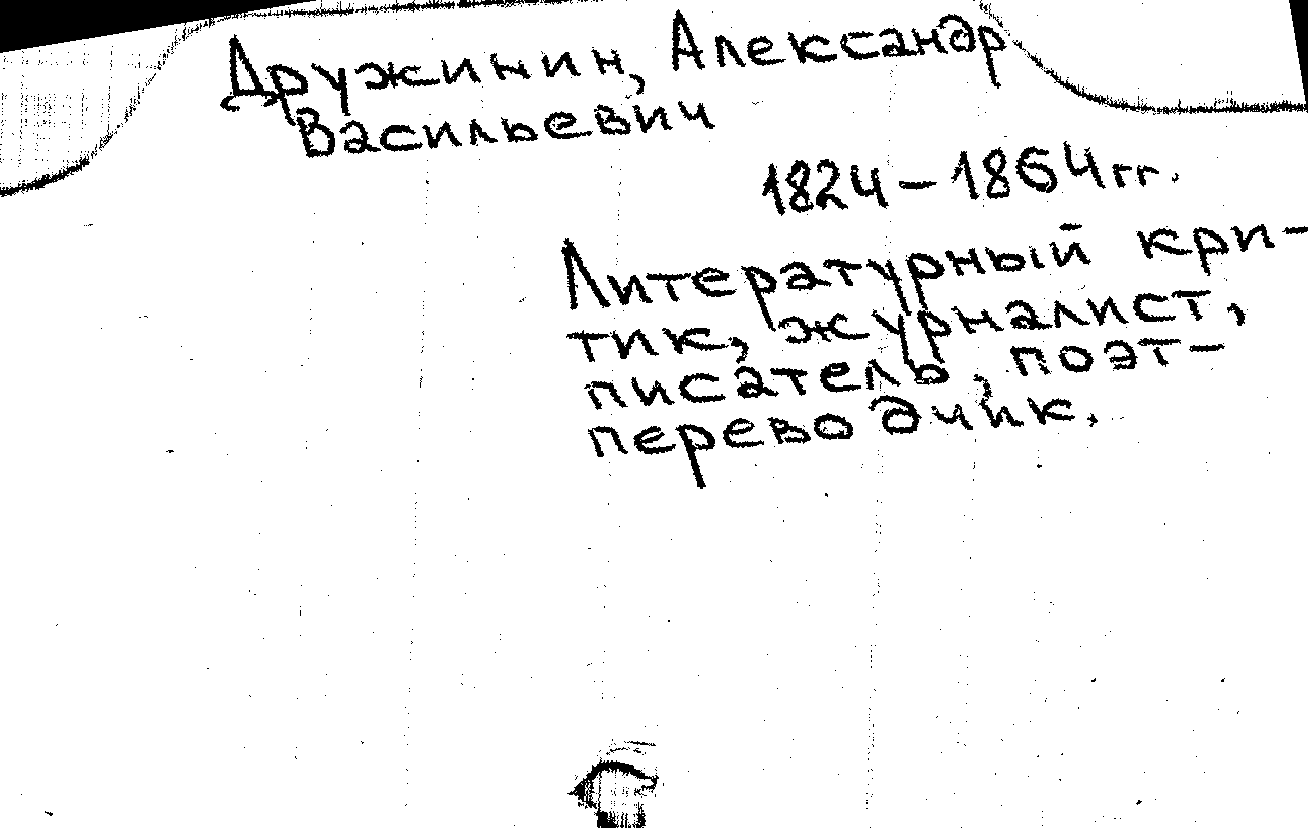 Дружинин, Александр
Васильевич
1824-1864гг.
Литературный кри-
тик, журналист,
писатель, поэт-
переводчик.